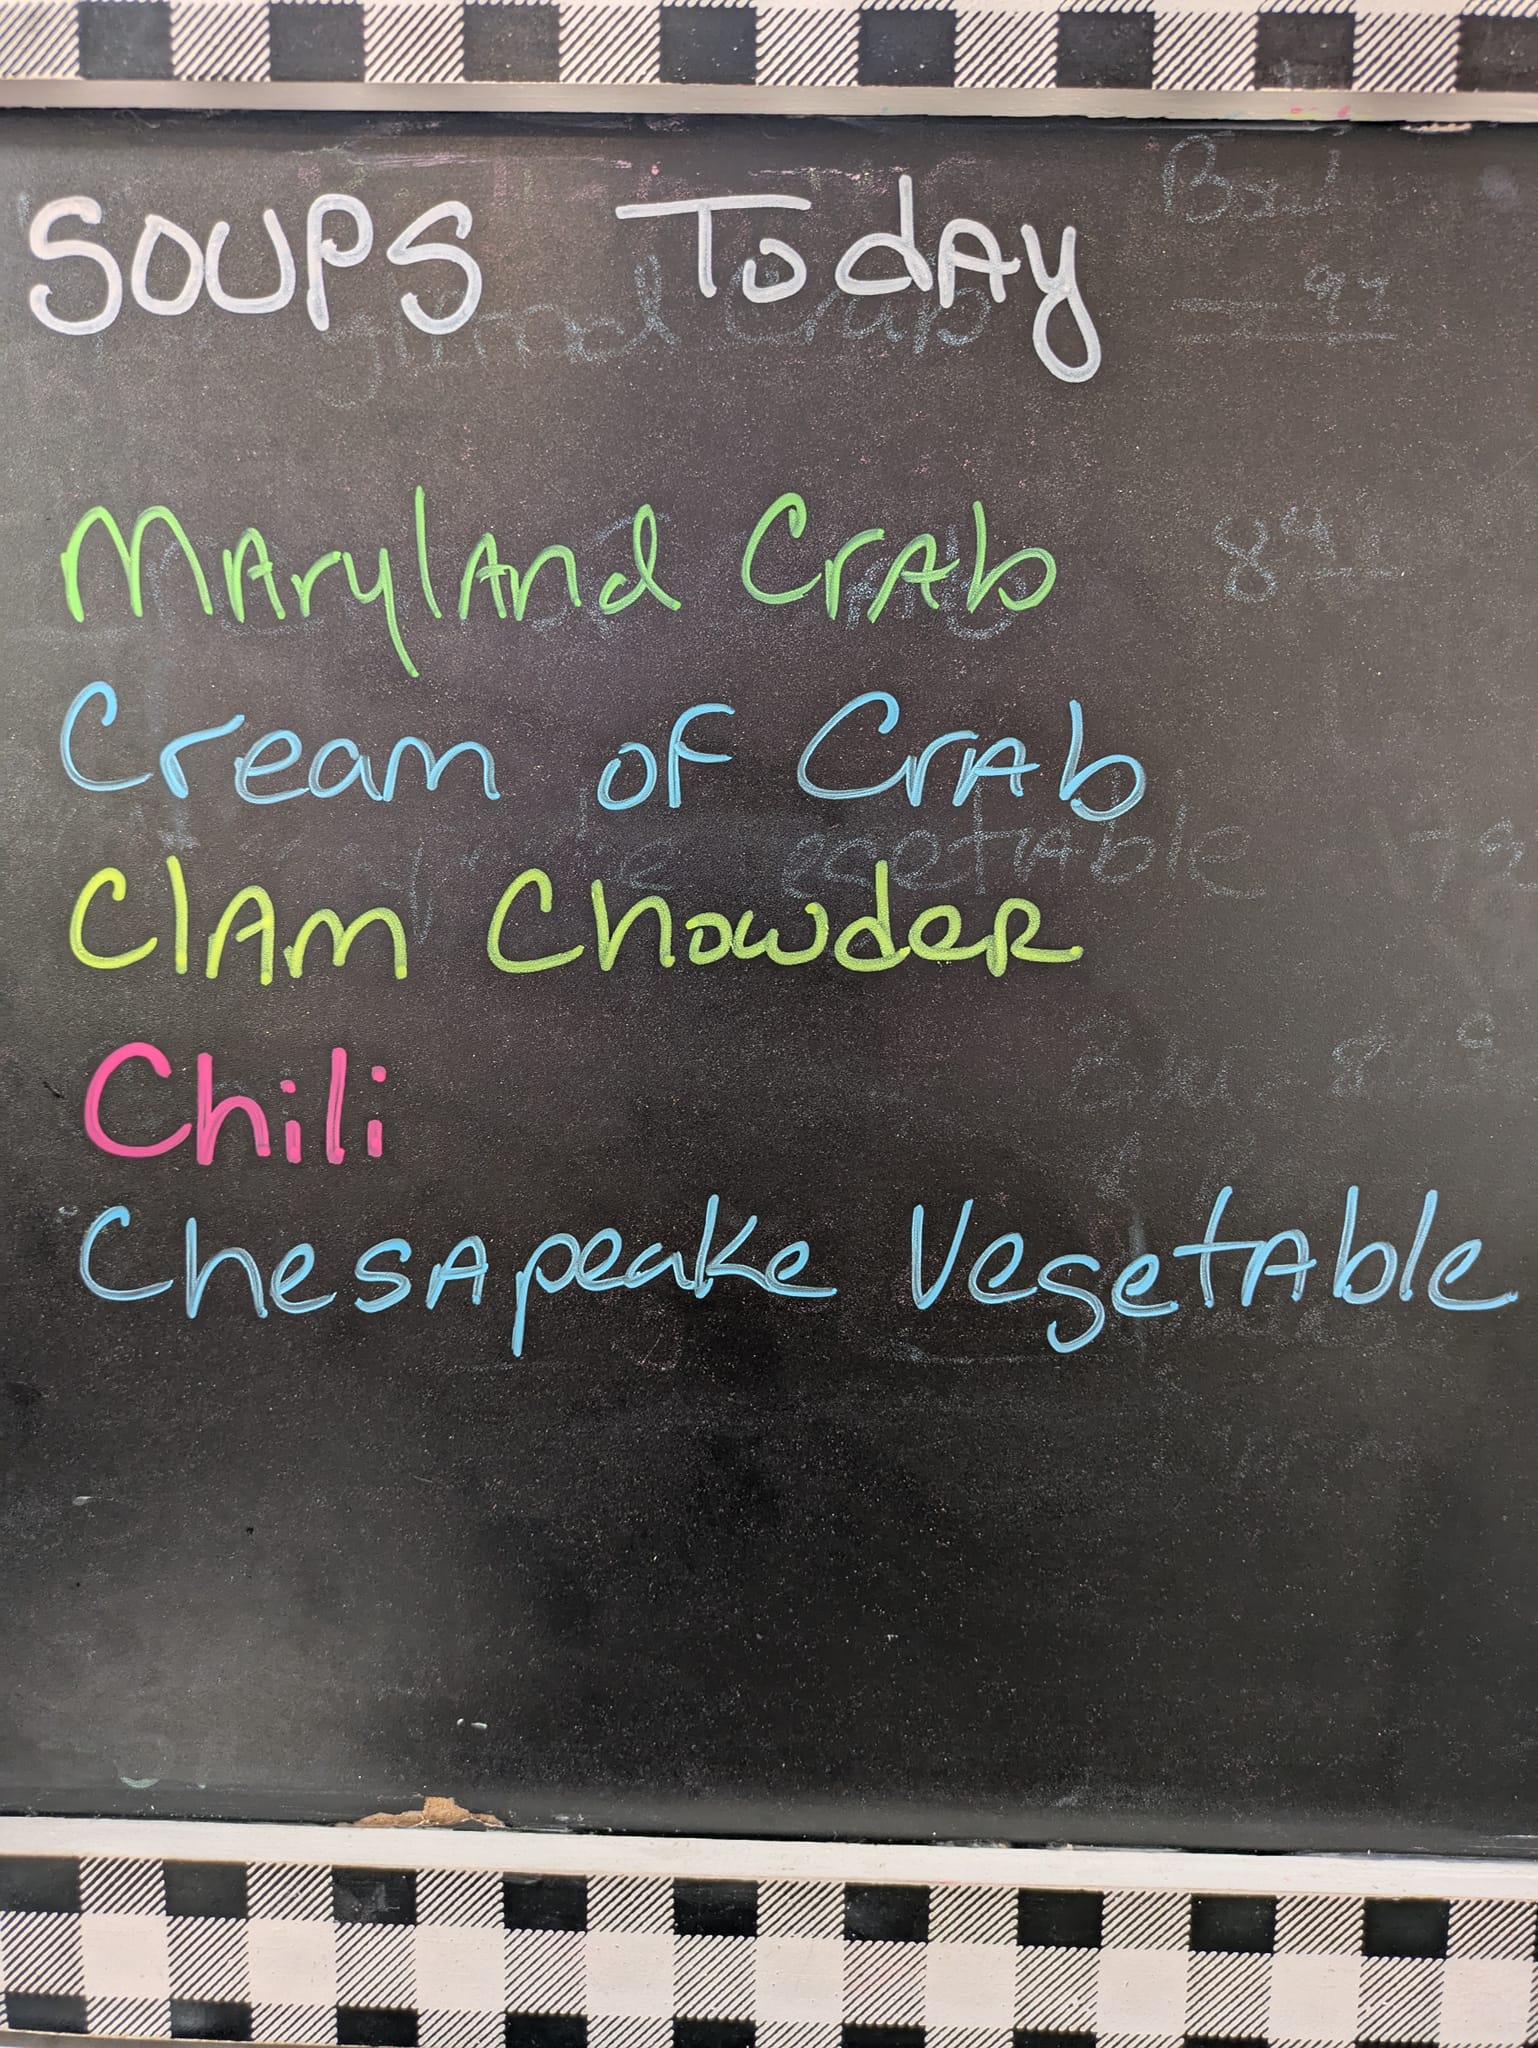 SOUPS TodAy
MARylAnd CrAb
Cream of CrAb
ClAm Chowder
Chili
ChesApeake VegetAble